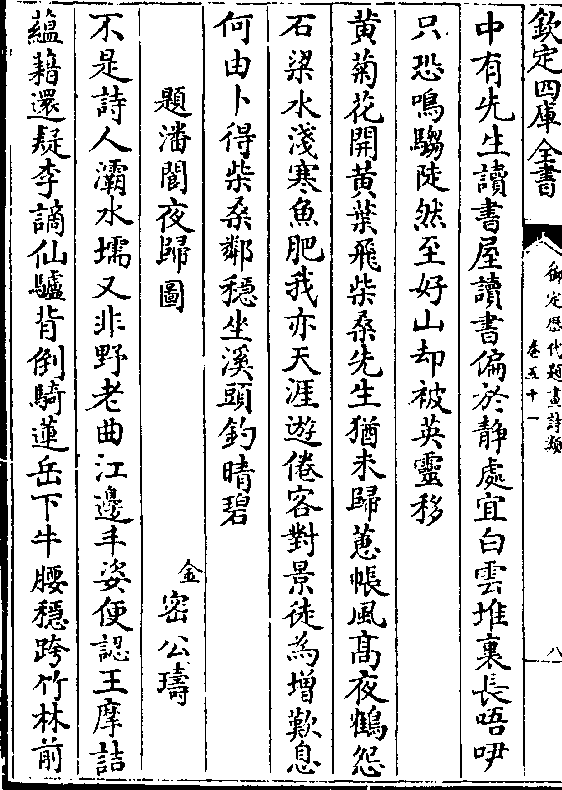 欽定四庫全書
御定歷代題畫詩類
卷五十一
八
中有先生讀書屋讀書偏於静處宜白雲堆裏長唔咿
只恐鳴騶陡然至好山却被英靈移
黄菊花開黄葉飛柴桑先生猶未歸蕙帳風髙夜鶴怨
石梁水淺寒魚肥我亦天涯遊倦客對景徒為增歎息
何由卜得柴桑鄰穏坐溪頭釣晴碧
題潘閬夜歸圖
金
密公璹
不是詩人灞水壖又非野老曲江邊丰姿便認王摩詰
藴藉還疑李謫仙驢背倒騎蓮岳下牛腰穏跨竹林前